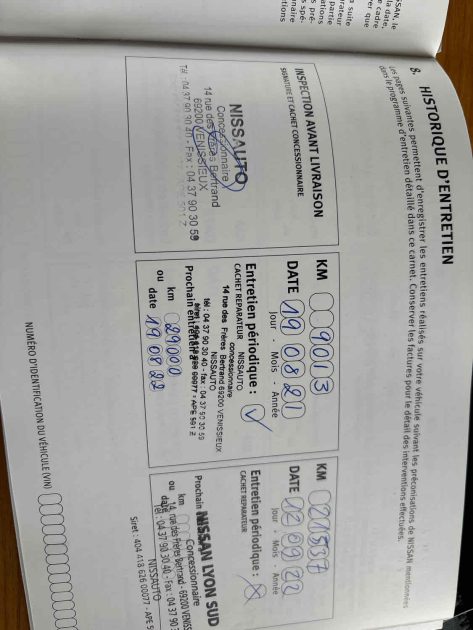 8. HISTORIQUE D'ENTRETIEN
Les pages suivantes permettent d'enregistrer les entretiens réalisés sur votre véhicule suivant les préconisations de NISSAN mentionnées
dans le programme d'entretien détaillé dans ce carnet. Conserver les factures pour le détail des interventions effectuées.
INSPECTION AVANT LIVRAISON
SIGNATURE ET CACHET CONCESSIONNAIRE
NISSAUTO
Concessionnaire
14 rue des Frères Bertrand
69200 VENISSIEUX
Tél : 04 37 90 30 40 - Fax : 04 37 90 30 59
KM 9013
DATE 19 08 21
Jour - Mois - Année
Entretien périodique : ✓
CACHET REPARATEUR NISSAUTO
concessionnaire
14 rue des Frères Bertrand 69200 VENISSIEUX
NISSAUTO
tél : 04 37 90 30 40 - fax : 04 37 90 30 59
Prochain entretien à
km 29000
ou date 19 08 22
KM 21537
DATE 12 09 22
Jour - Mois - Année
Entretien périodique : X
CACHET REPARATEUR
NISSAN LYON SUD
Prochain
Concessionnaire
km
14, rue des Frères Bertrand - 69200 VENISS
ou date
Tél : 04 37 90 30 40 - Fax : 04 37 90
NISSAUTO
Siret : 404 418 626 00077 - APE
NUMÉRO D'IDENTIFICATION DU VÉHICULE (VIN)